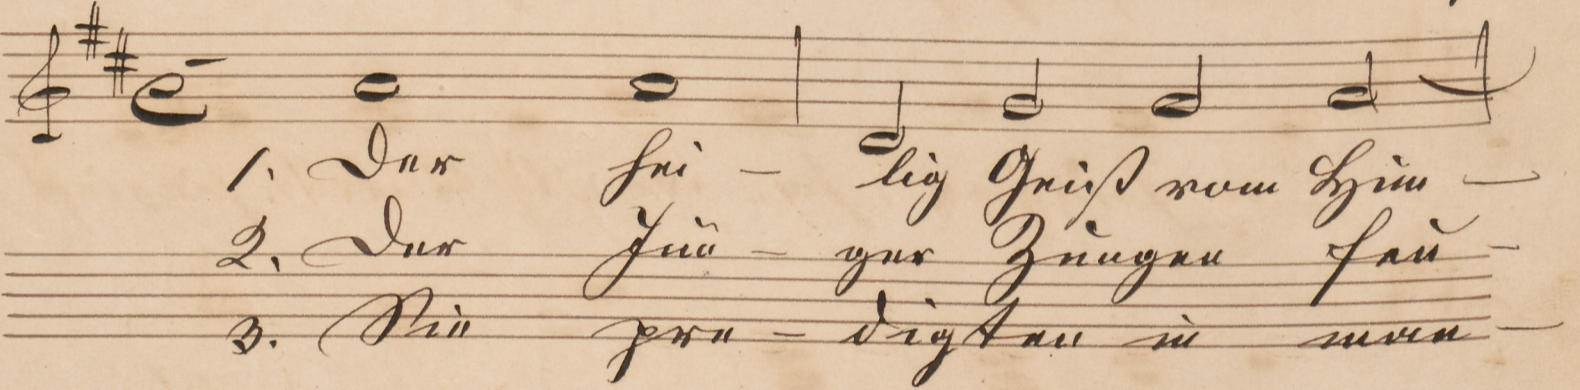 1. Der hei – lig Geist vom Him –
2. Der Jün – ger Zungen feu –
3. Sie pre – digten in man –